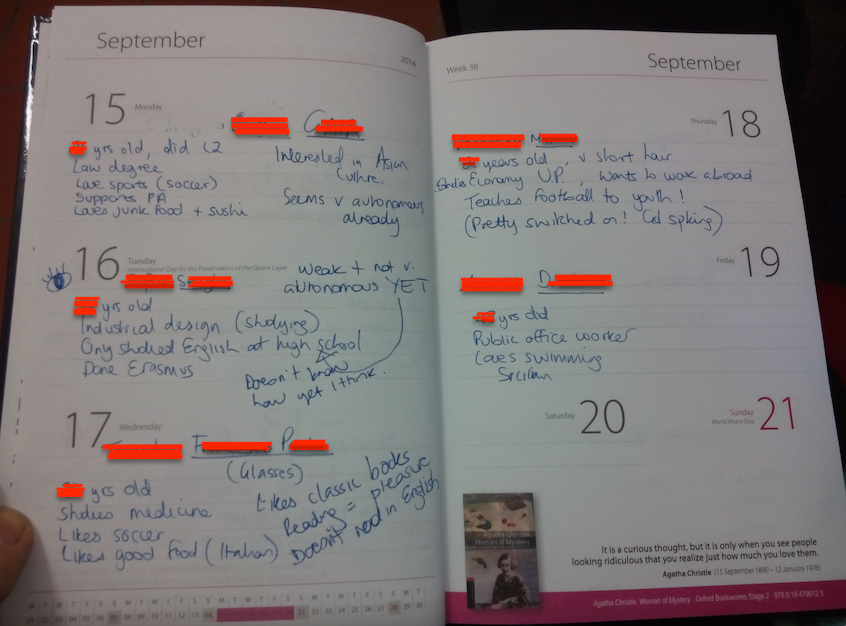 September
2014
15 Monday
C
yrs old, did L2
Law degree
Love sports (soccer)
Supports PA
Loves junk food + sushi
Interested in Asian
Culture.
Seems v autonomous
already
16 Tuesday
International Day for the Preservation of the Ozone Layer
S
Weak + not v.
autonomous YET
yrs old
Industrial design (studying)
Only studied English at high school
Done Erasmus
Doesn't know
how yet I think.
17 Wednesday
F P
(Glasses)
yrs old
Studies medicine
Likes soccer
Likes good food (Italian)
Likes classic books
Reading = pleasure
Doesn't read in English
M T W T F S S M T W T F S S M T W T F S S M T W T F S S M T
01 02 03 04 05 06 07 08 09 10 11 12 13 14 21 22 23 24 25 26 27 28 29 30
Week 38
September
Thursday 18
M
years old, v short hair
Studies Economy UP, Wants to work abroad
Teaches football to youth!
(Pretty switched on! Gd spking)
Friday 19
D
yrs old
Public office worker
Loves swimming
Sicilian
Saturday 20
Sunday 21
World Peace Day
Agatha Christie,
Woman of Mystery
It is a curious thought, but it is only when you see people
looking ridiculous that you realize just how much you love them.
Agatha Christie (15 September 1890–12 January 1976)
Agatha Christie, Woman of Mystery Oxford Bookworms Stage 2 · 978 0 19 479012 3